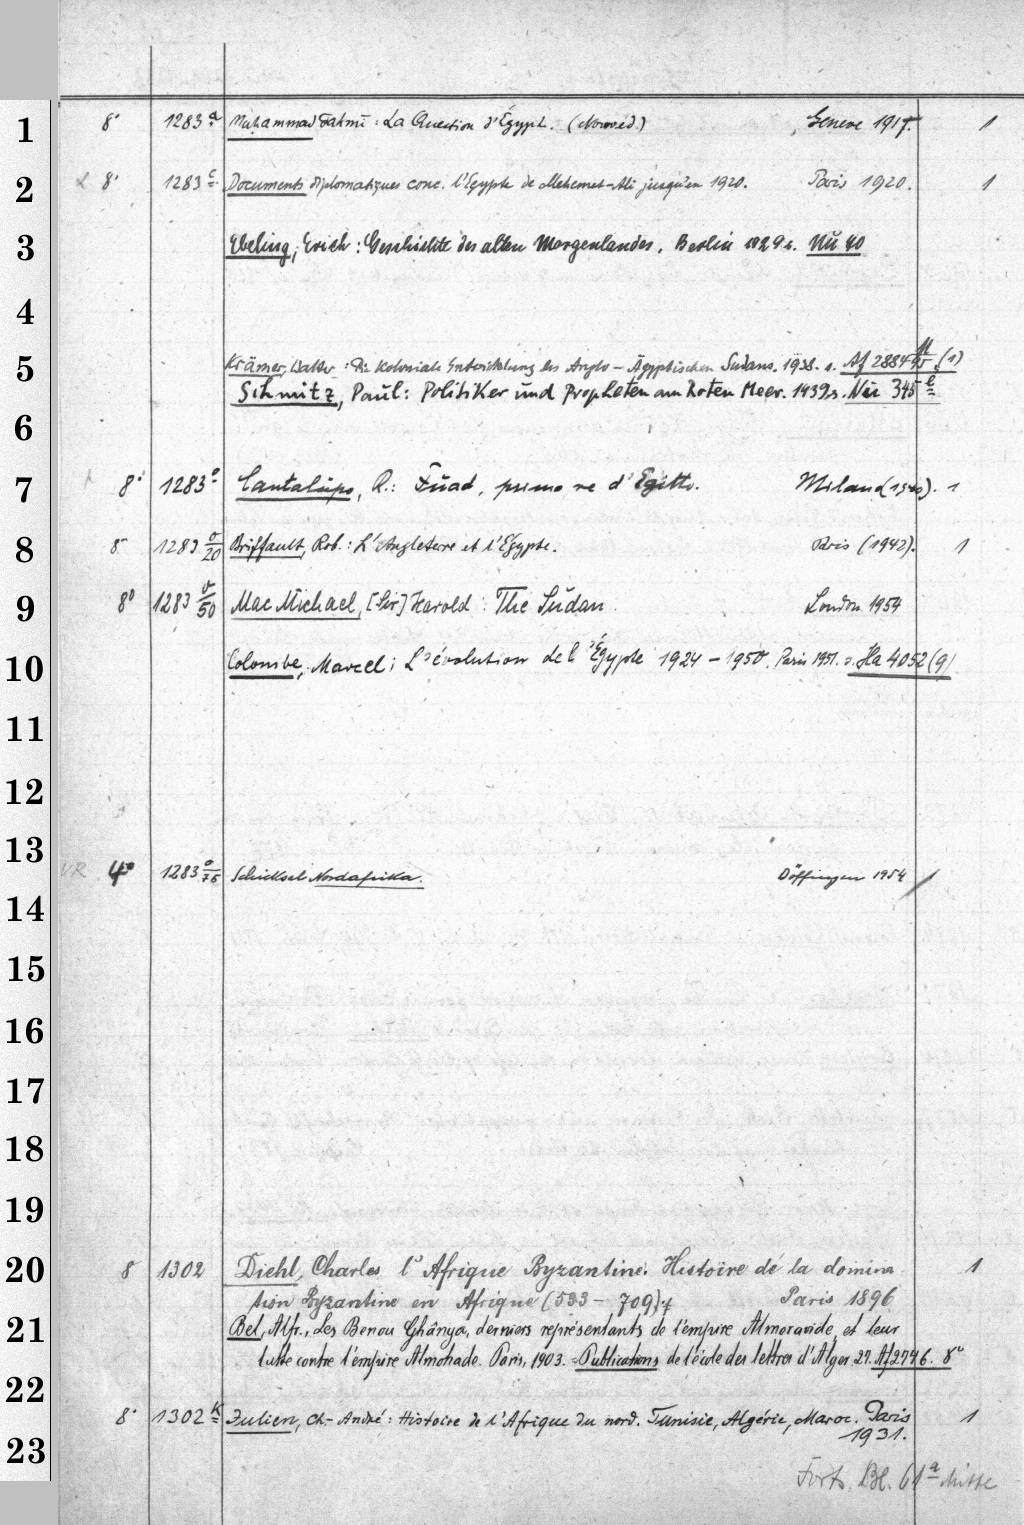 1 8° 1283 a Muḥammad Fahmī : La Question d'Égypt. (Nouv. éd.) Geneve 1917. 1
2 8° 1283 c Documents diplomatiques conc. l'Egypte de Mehemet-Ali jusqu'en 1920. Paris 1920. 1
3 Ebeling, Erich : Geschichte des alten Morgenlandes. Berlin 1929 s. Nū 40
4
5 Krämer, Walter : Die Koloniale Entwicklung des Anglo-Ägyptischen Sudans. 1938. s. Af 2884 (1)
Schmitz, Paul : Politiker und Propheten am Roten Meer. 1939 s. Nū 345 e
6
7 8° 1283 o Cantalupo, R. : Fūad, primo re d'Egitto. Milano (1940). 1
8 8° 1283 o/20 Briffault, Rob. : L'Angleterre et l'Égypte. Paris (1942). 1
9 8° 1283 o/50 Mac Michael, [Sir] Harold : The Sudan. London 1954
10 Colombe, Marcel : L'évolution de l'Égypte 1924-1950. Paris 1951. s. Ha 4052 (9)
11
12
13
4° 1283 o/75 Schicksal Nordafrika. Döffingen 1954 /
14
15
16
17
18
19
20 8 1302 Diehl, Charles l'Afrique Byzantine. Histoire de la domina
tion Byzantine en Afrique (533-709). Paris 1896 1
21 Bel, Alfr., Les Benou Ghânya, derniers représentants de l'empire Almoravide, et leur
lutte contre l'empire Almohade. Paris, 1903. = Publications de l'école des lettres d'Alger. 27. Af 2746. 8°
22
8° 1302 k Julien, Ch-André : Histoire de l'Afrique du nord. Tunisie, Algérie, Maroc. Paris 1
23 1931.
Forts. Bl. 61 a Mitte